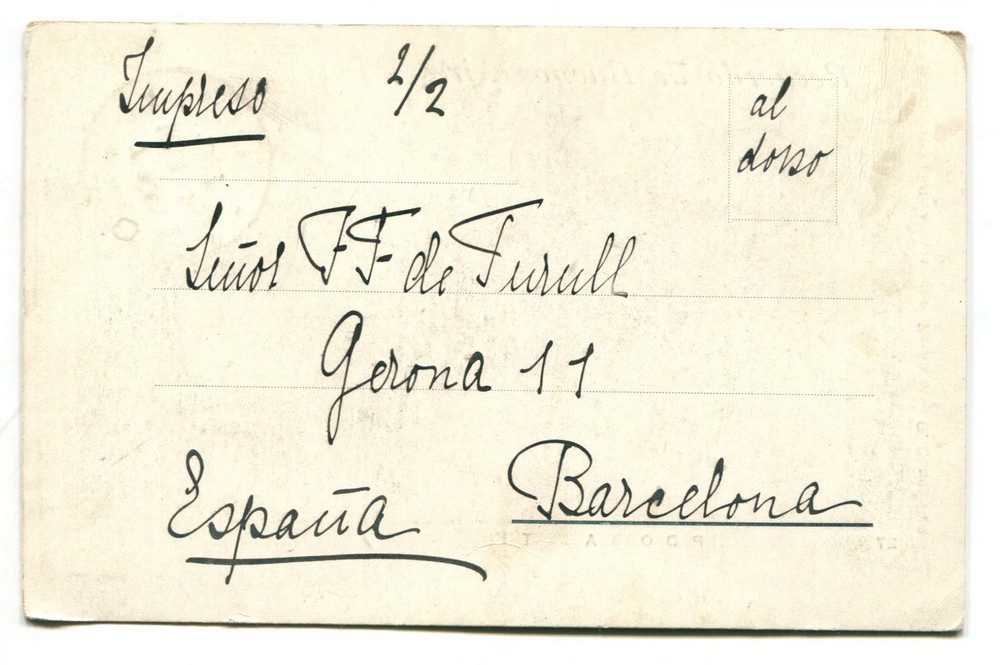 Impreso
2/2
al
dorso
Señor FF de Turull
Gerona 11
España
Barcelona